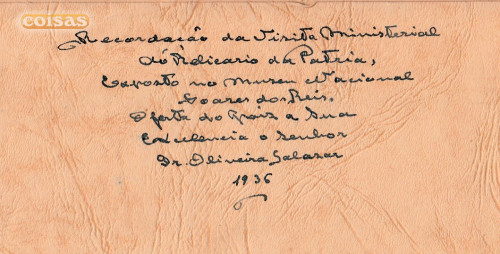 coisas
Recordação da Visita Ministerial
dó Relicario da Patria,
Exposto no Museu Nacional
Soares dos Reis.
Oferta do Paiz a Sua
Excelencia o Senhor
Dr. Oliveira Salazar
1936